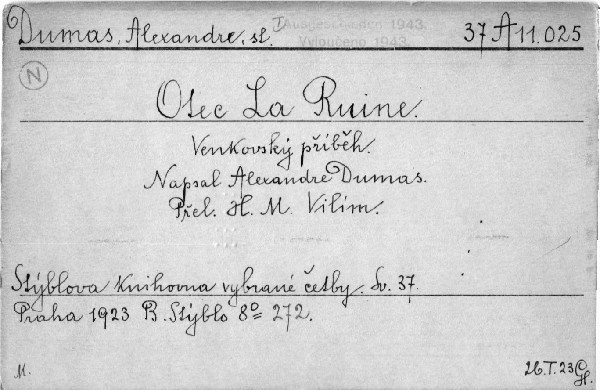 Dumas, Alexandre, st.
Ausgeschieden 1943.
Vyloučeno 1943.
37 A 11.025
N
Otec La Ruine.
Venkovský příběh.
Napsal Alexandre Dumas.
Přel. H. M. Vilím.
Stýblova Knihovna vybrané četby. Sv. 37.
Praha 1923 B. Stýblo 8º 272.
M.